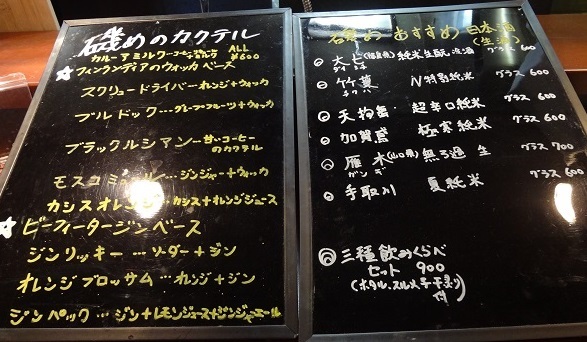 磯めのカクテル
カルーアミルク…コーヒー+牛乳 ALL ¥600
☆フィンランディアのウォッカベース
スクリュードライバー…オレンジ+ウォッカ
ブルドック…グレープフルーツ+ウォッカ
ブラックルシアン…甘いコーヒーのカクテル
モスコミュール…ジンジャー+ウォッカ
カシスオレンジ…カシス+オレンジジュース
☆ビーフィータージンベース
ジンリッキー…ソーダー+ジン
オレンジブロッサム…オレンジ+ジン
ジンバック…ジン+レモンジュース+ジンジャーエール
磯め おすすめ日本酒
(生酒)
大七(福島県)純米生酛 グラス600
ダイシチ
竹葉 N特別純米 グラス600
チクハ
天狗舞 超辛口純米 グラス600
加賀鳶 極寒純米 グラス600
雁木(山口県)無ろ過 生 グラス700
ガンギ
手取川 夏純米 グラス600
三種飲みくらべ
セット 900
(ホタル、スルメ子干炙り付)